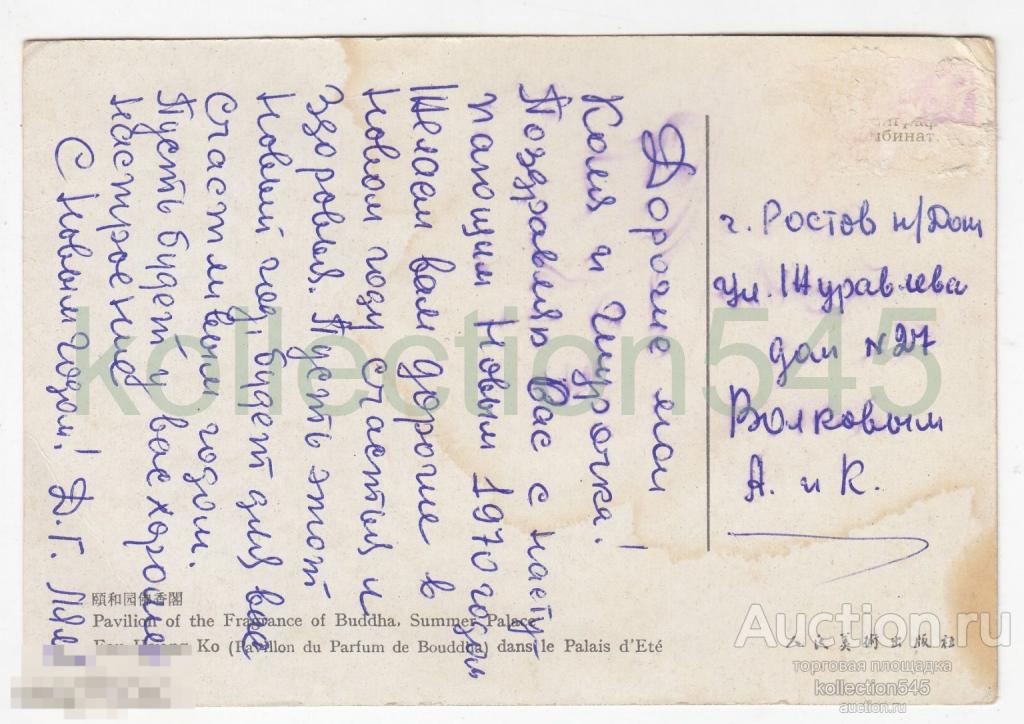 Дорогие мои
Коля и Шурочка!
Поздравляю Вас с насту
пающим Новым 1970 годом
Желаем вам дорогие в
Новом году счастья и
здоровья. Пусть этот
Новый год, будет для вас
Счастливым годом.
Пусть будет у вас хорошее
настроение
С Новым годом! Д. Г.
г. Ростов н/Дон
ул. Журавлева
дом N 27
Волковым
А. и К.
бинат.
頤和园佛香閣
Pavilion of the Fragrance of Buddha, Summer Palace
Ko (Pavillon du Parfum de Bouddha) dans le Palais d'Eté
人民美術出版社
kollection545
Auction.ru
торговая площадка
kollection545
auction.ru